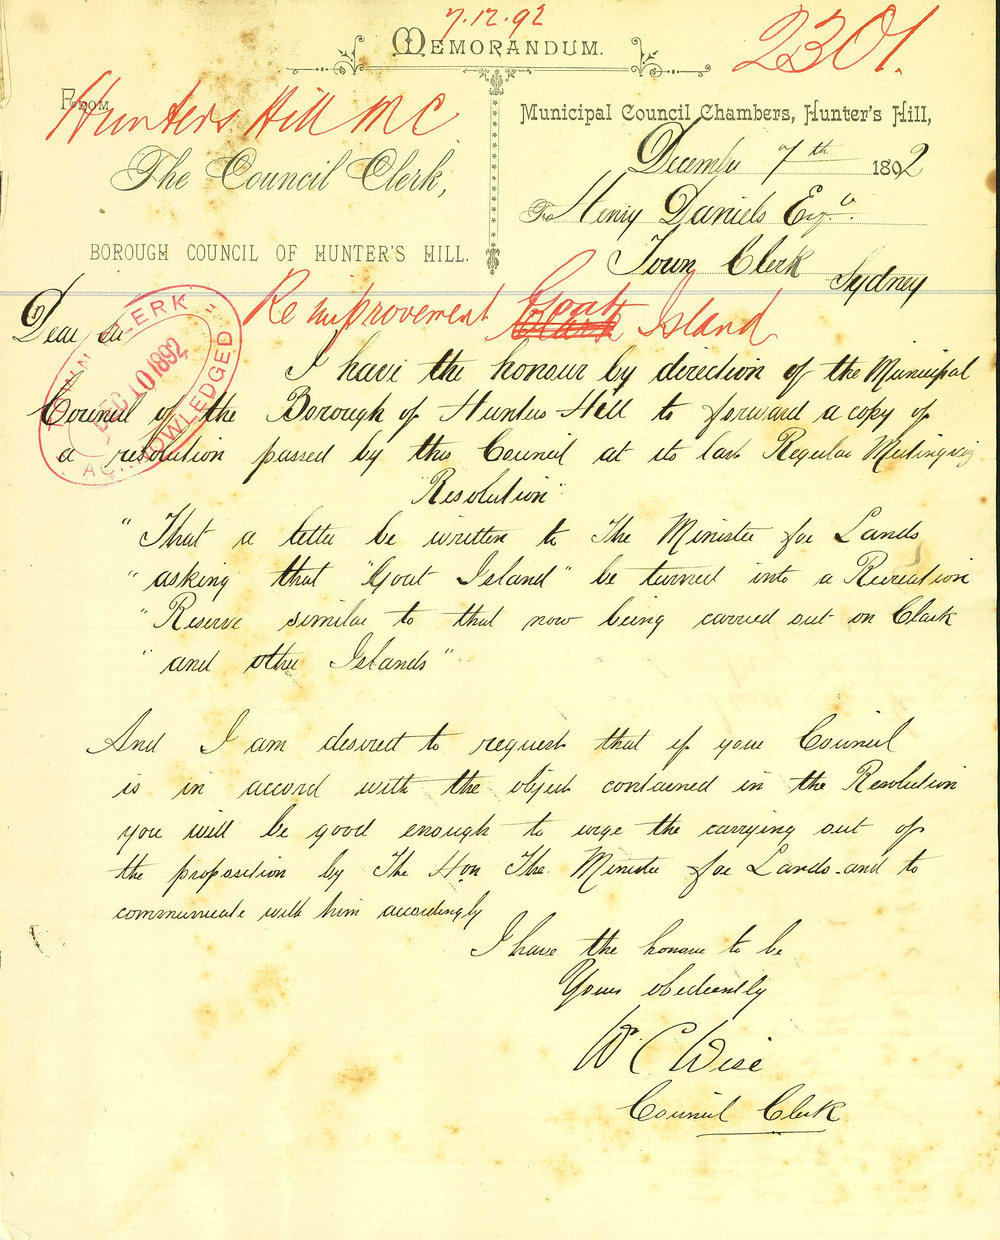 7.12.92
MEMORANDUM.
2301.
FROM
Hunters Hill M C
The Council Clerk,
BOROUGH COUNCIL OF HUNTER'S HILL.
Municipal Council Chambers, Hunter's Hill,
December 7th 1892
To Henry Daniels Esqr.
Town Clerk
Sydney
Re improvement Goat Island
Dear Sir
TOWN CLERK
DEC 10 1892
ACKNOWLEDGED
I have the honour by direction of the Municipal
Council of the Borough of Hunters Hill to forward a copy of
a resolution passed by this Council at its last Regular Meeting viz
"Resolution"
"That a letter be written to The Minister for Lands
" asking that "Goat Island" be turned into a Recreation
" Reserve similar to that now being carried out on Clark
" and other Islands"
And I am desired to request that if your Council
is in accord with the object contained in the Resolution
you will be good enough to urge the carrying out of
the proposition by The Hon The Minister for Lands and to
communicate with him accordingly
I have the honour to be
Yours obediently
Wm C Wise
Council Clerk